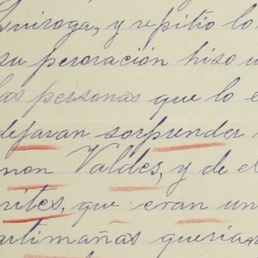 Quiroga, y repitio lo
su peroración hiso u
las personas que lo e
dejaran sorprender
non Valdes, y de el
rites, que eran un
artimañas querian